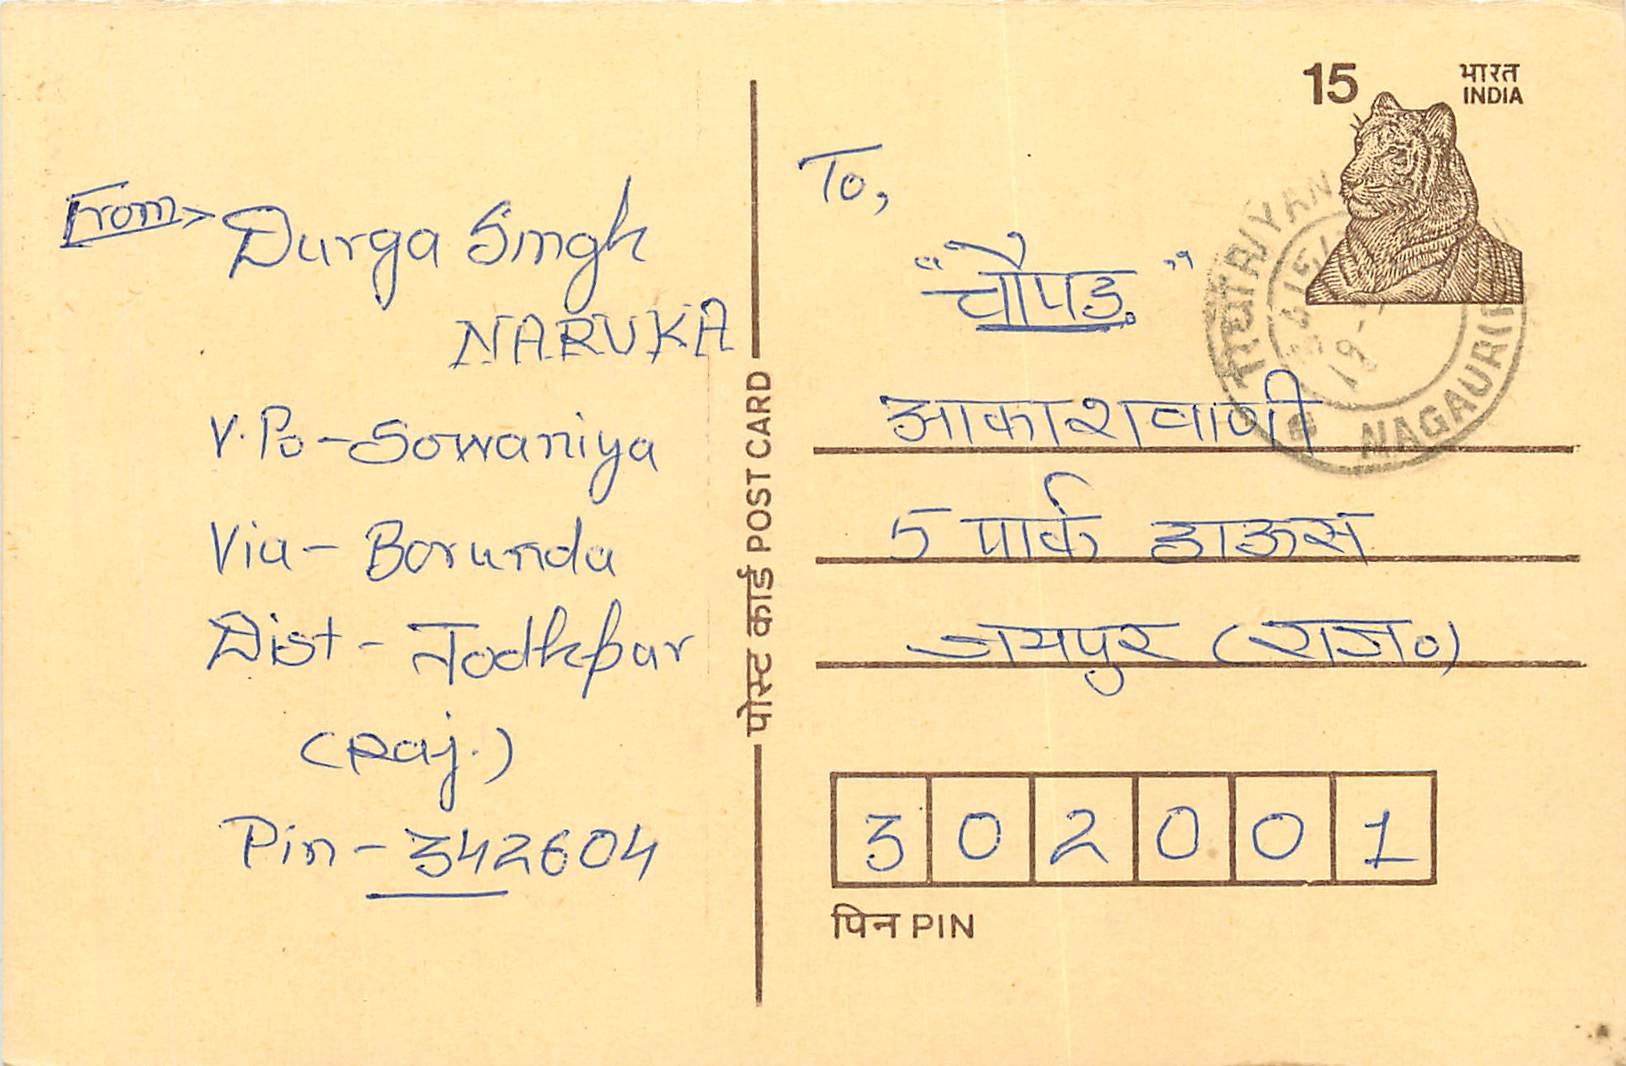 From > Durga Singh
NARUKA
V.Po - Sowaniya
Via - Borunda
Dist - Jodhpur
(Raj.)
Pin - 342604
पोस्ट कार्ड POST CARD
15
भारत
INDIA
To,
"चौपड़"
आकाशवाणी
5 पार्क हाऊस
जयपुर (राज०)
302001
पिन PIN
NAGAUR